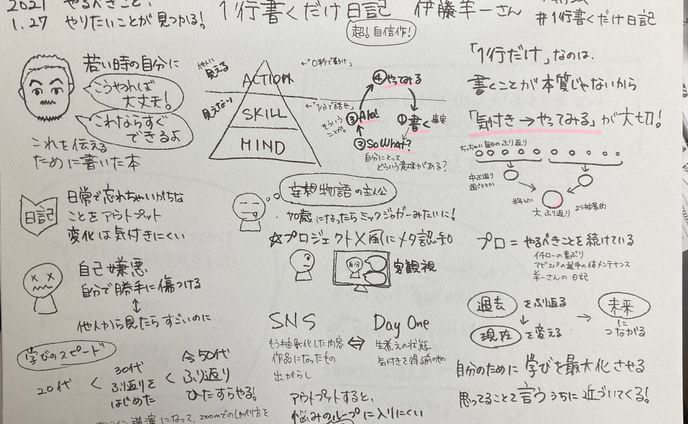 2021
1.27
やるべきこと、
やりたいことが見つかる!
1行書くだけ日記 伊藤羊一さん
超!自信作!
#1行書くだけ日記
若い時の自分に
こうやれば
大丈夫!
これならすぐ
できるよ
これを伝える
ために書いた本
他人に
見える
見えない
ACTION
SKILL
MIND
④やってみる
③Aha!
①書く
②So What?
自分にとって
どういう意味がある?
「1行だけ」なのは、
書くことが本質じゃないから
「気付き→やってみる」が大切!
中ふり返り
大ふり返り
日記
日常で忘れちゃいがちな
ことをアウトプット
変化は気付きにくい
妄想物語の主人公
70歳になったらミックジャガーみたいに!
☆プロジェクトX風にメタ認知
自分
客観視
プロ=やるべきことを続けている
イチローの素ぶり
羊一さんの日記
自己嫌悪
自分で勝手に傷つける
他人から見たらすごいのに
過去をふり返る
現在を変える
未来
につながる
SNS
作品になったもの
出がらし
Day One
生煮えの状態
学びのスピード
20代 < 30代
ふり返りを
はじめた
< 今50代
ふり返り
ひたすらやる!
アウトプットすると、
悩みのループに入りにくい
自分のために学びを最大化させる
思ってることって言ううちに近づいてくる!